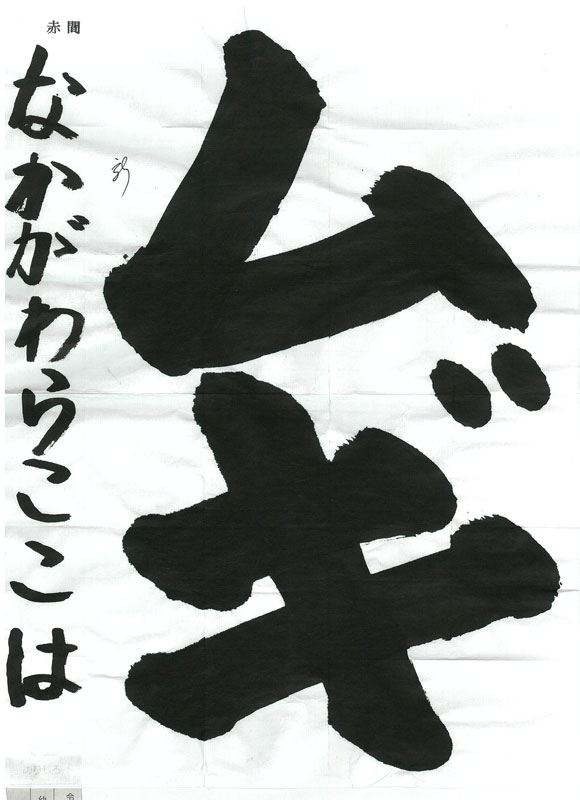 ムギ
赤間
なかがわらここは